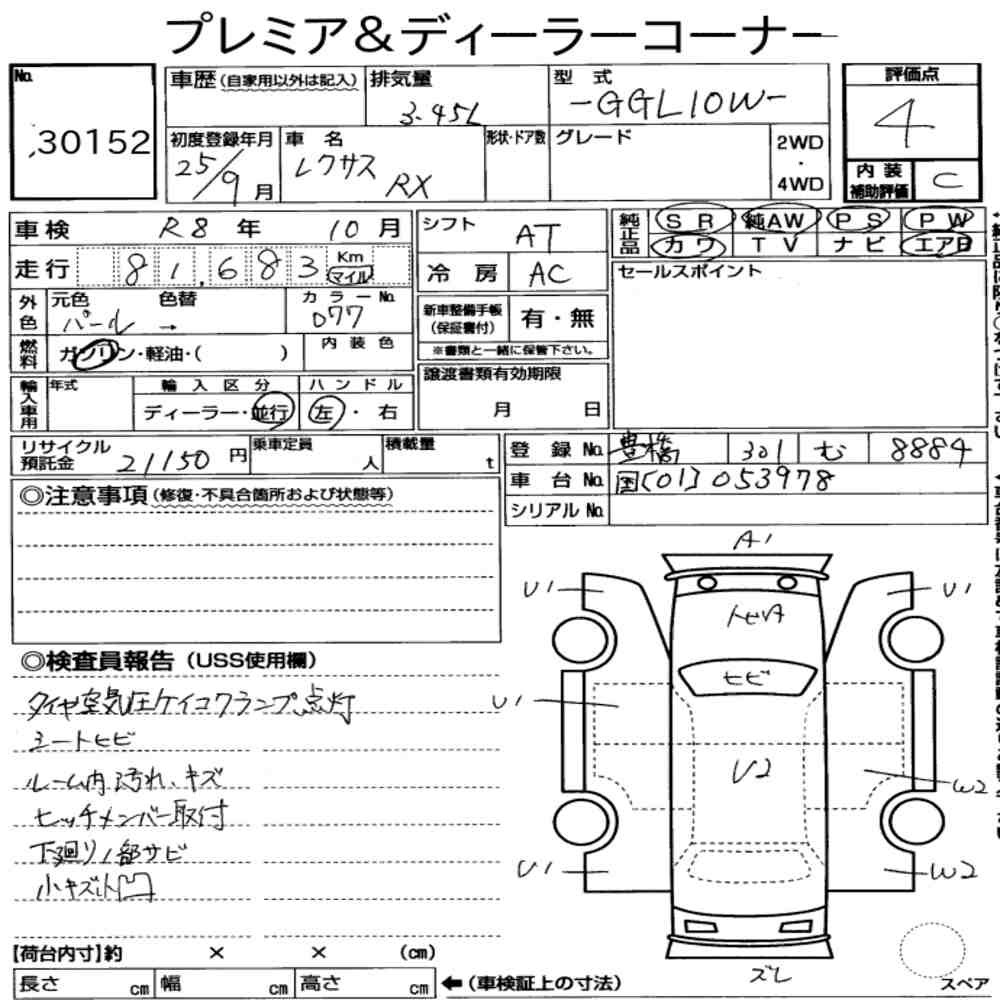 プレミア&ディーラーコーナー
No. 30152
車歴(自家用以外は記入)
排気量 3.45L
型式 -GGL10W-
評価点 4
初度登録年月 25/9月
車名 レクサス RX
形状・ドア数
グレード
2WD・4WD
内装補助評価 C
車検 R8年 10月
シフト AT
純正品 SR 純AW PS PW
カワ TV ナビ エアB
走行 81,683 Km マイル
冷房 AC
セールスポイント
外色 元色 パール → 色替 カラーNo. 077
新車整備手帳(保証書付) 有・無
※書類と一緒に保管下さい。
燃料 ガソリン・軽油・( )
内装色
譲渡書類有効期限 月 日
輸入車用 年式 輸入区分 ディーラー・並行 ハンドル 左・右
リサイクル預託金 21150円
乗車定員 人
積載量 t
登録No. 豊橋 301 む 8884
車台No. 国[01]053978
シリアルNo.
◎注意事項(修復・不具合箇所および状態等)
A1
U1 U1
トビA
ヒビ
◎検査員報告(USS使用欄)
タイヤ空気圧ケイコクランプ点灯
シートヒビ
ルーム内汚れ、キズ
ヒッチメンバー取付
下廻り1部サビ
小キズ小凹
U1
U2
W2
U1 W2
ズレ
【荷台内寸】約 × × (cm)
長さ cm 幅 cm 高さ cm ←(車検証上の寸法)
スペア